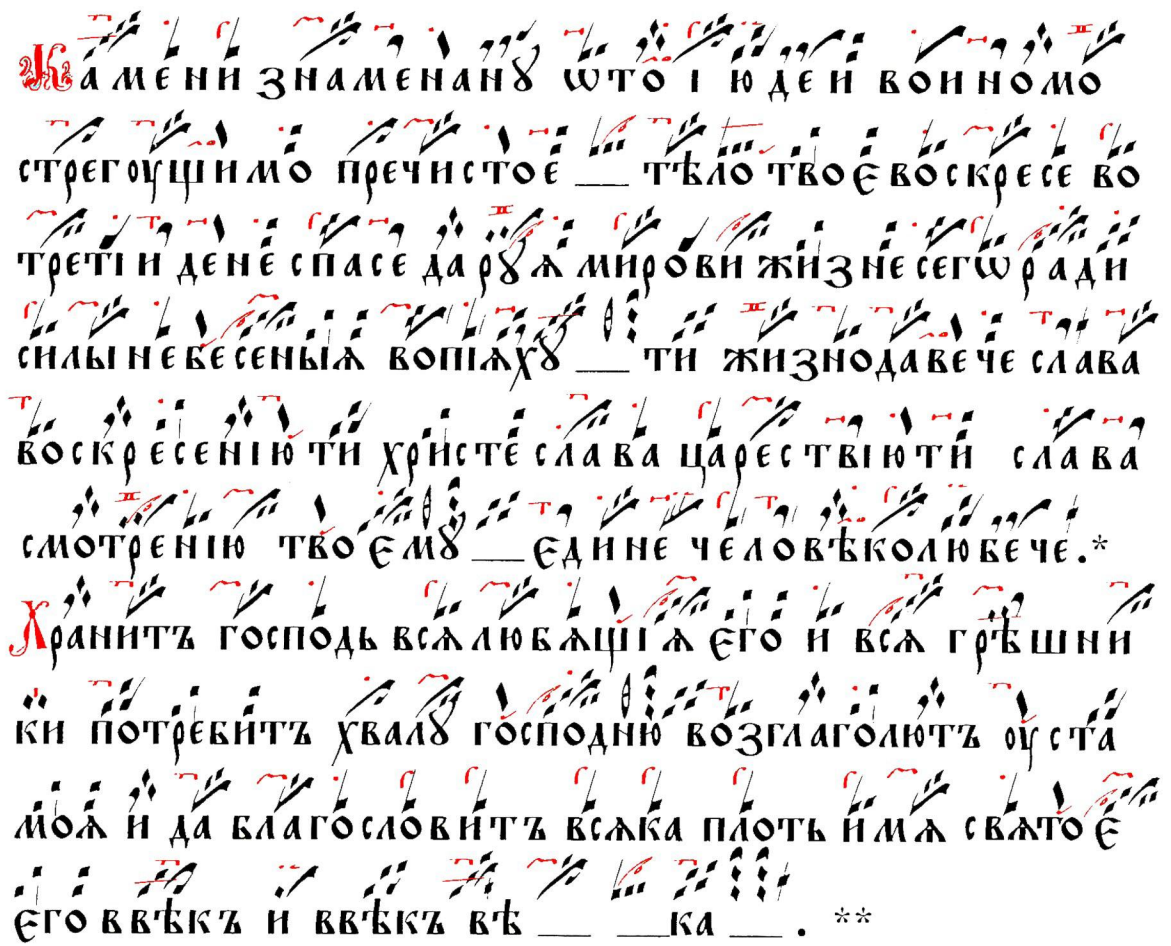 Камени знаменанꙋ ѿто іюдеи воиномо
стрегоущимо пречистое __ тѣло твоє воскресе во
третіи дене спасе дарꙋѧ мирови жизне сегѡ ради
силы небесеныѧ вопіѧхꙋ __ ти жизнодавече слава
воскресенію ти христе слава царествію ти слава
смотренію твоємꙋ __ єдине человѣколюбече.*
Хранитъ господь всѧ любѧщіѧ єго и всѧ грѣшни
ки потребитъ хвалꙋ господню возглаголютъ оуста
моѧ и да благословитъ всѧка плоть имѧ свѧтоє
єго ввѣкъ и ввѣкъ вѣ __ __ ка __ . **